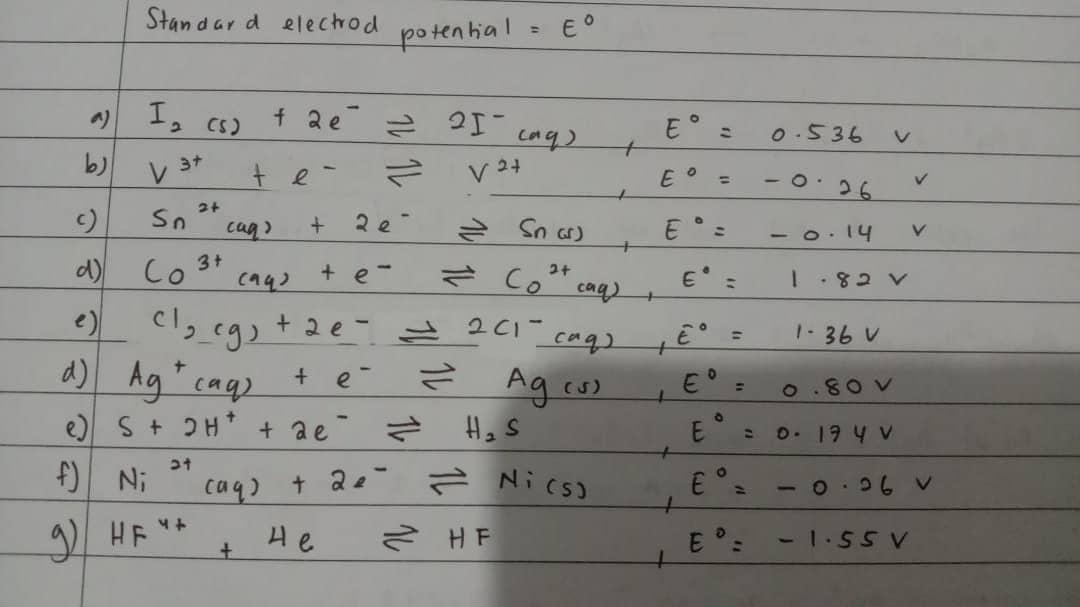 Standard electrod potential = E°
a) I₂ (s) + 2e⁻ ⇌ 2I⁻ (aq) , E° = 0.536 V
b) V³⁺ + e⁻ ⇌ V²⁺ , E° = -0.26 V
c) Sn²⁺ (aq) + 2e⁻ ⇌ Sn (s) , E° = -0.14 V
d) Co³⁺ (aq) + e⁻ ⇌ Co²⁺ (aq) , E° = 1.82 V
e) Cl₂ (g) + 2e⁻ ⇌ 2Cl⁻ (aq) , E° = 1.36 V
d) Ag⁺ (aq) + e⁻ ⇌ Ag (s) , E° = 0.80 V
e) S + 2H⁺ + 2e⁻ ⇌ H₂S , E° = 0.194 V
f) Ni²⁺ (aq) + 2e⁻ ⇌ Ni (s) , E° = -0.26 V
g) HF⁴⁺ + 4e ⇌ HF , E° = -1.55 V